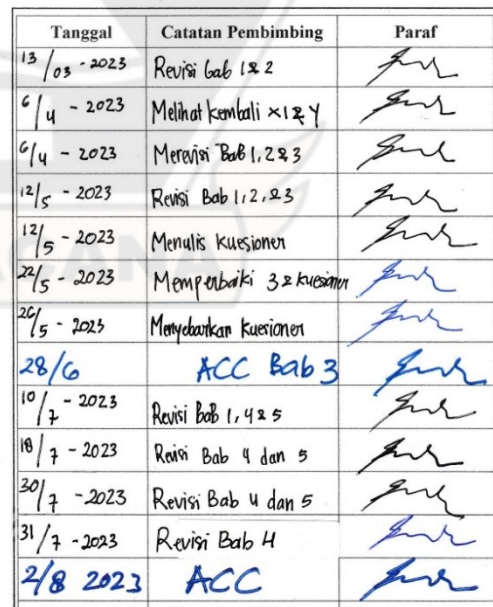 Tanggal Catatan Pembimbing Paraf
13/03 - 2023 Revisi bab 1 & 2
6/4 - 2023 Melihat kembali x1 & Y
6/4 - 2023 Merevisi Bab 1, 2 & 3
12/5 - 2023 Revisi Bab 1, 2, & 3
12/5 - 2023 Menulis kuesioner
22/5 - 2023 Memperbaiki 3 & kuesioner
26/5 - 2023 Menyebarkan kuesioner
28/6 ACC Bab 3
10/7 - 2023 Revisi Bab 1, 4 & 5
18/7 - 2023 Revisi Bab 4 dan 5
30/7 - 2023 Revisi Bab 4 dan 5
31/7 - 2023 Revisi Bab 4
2/8 2023 ACC